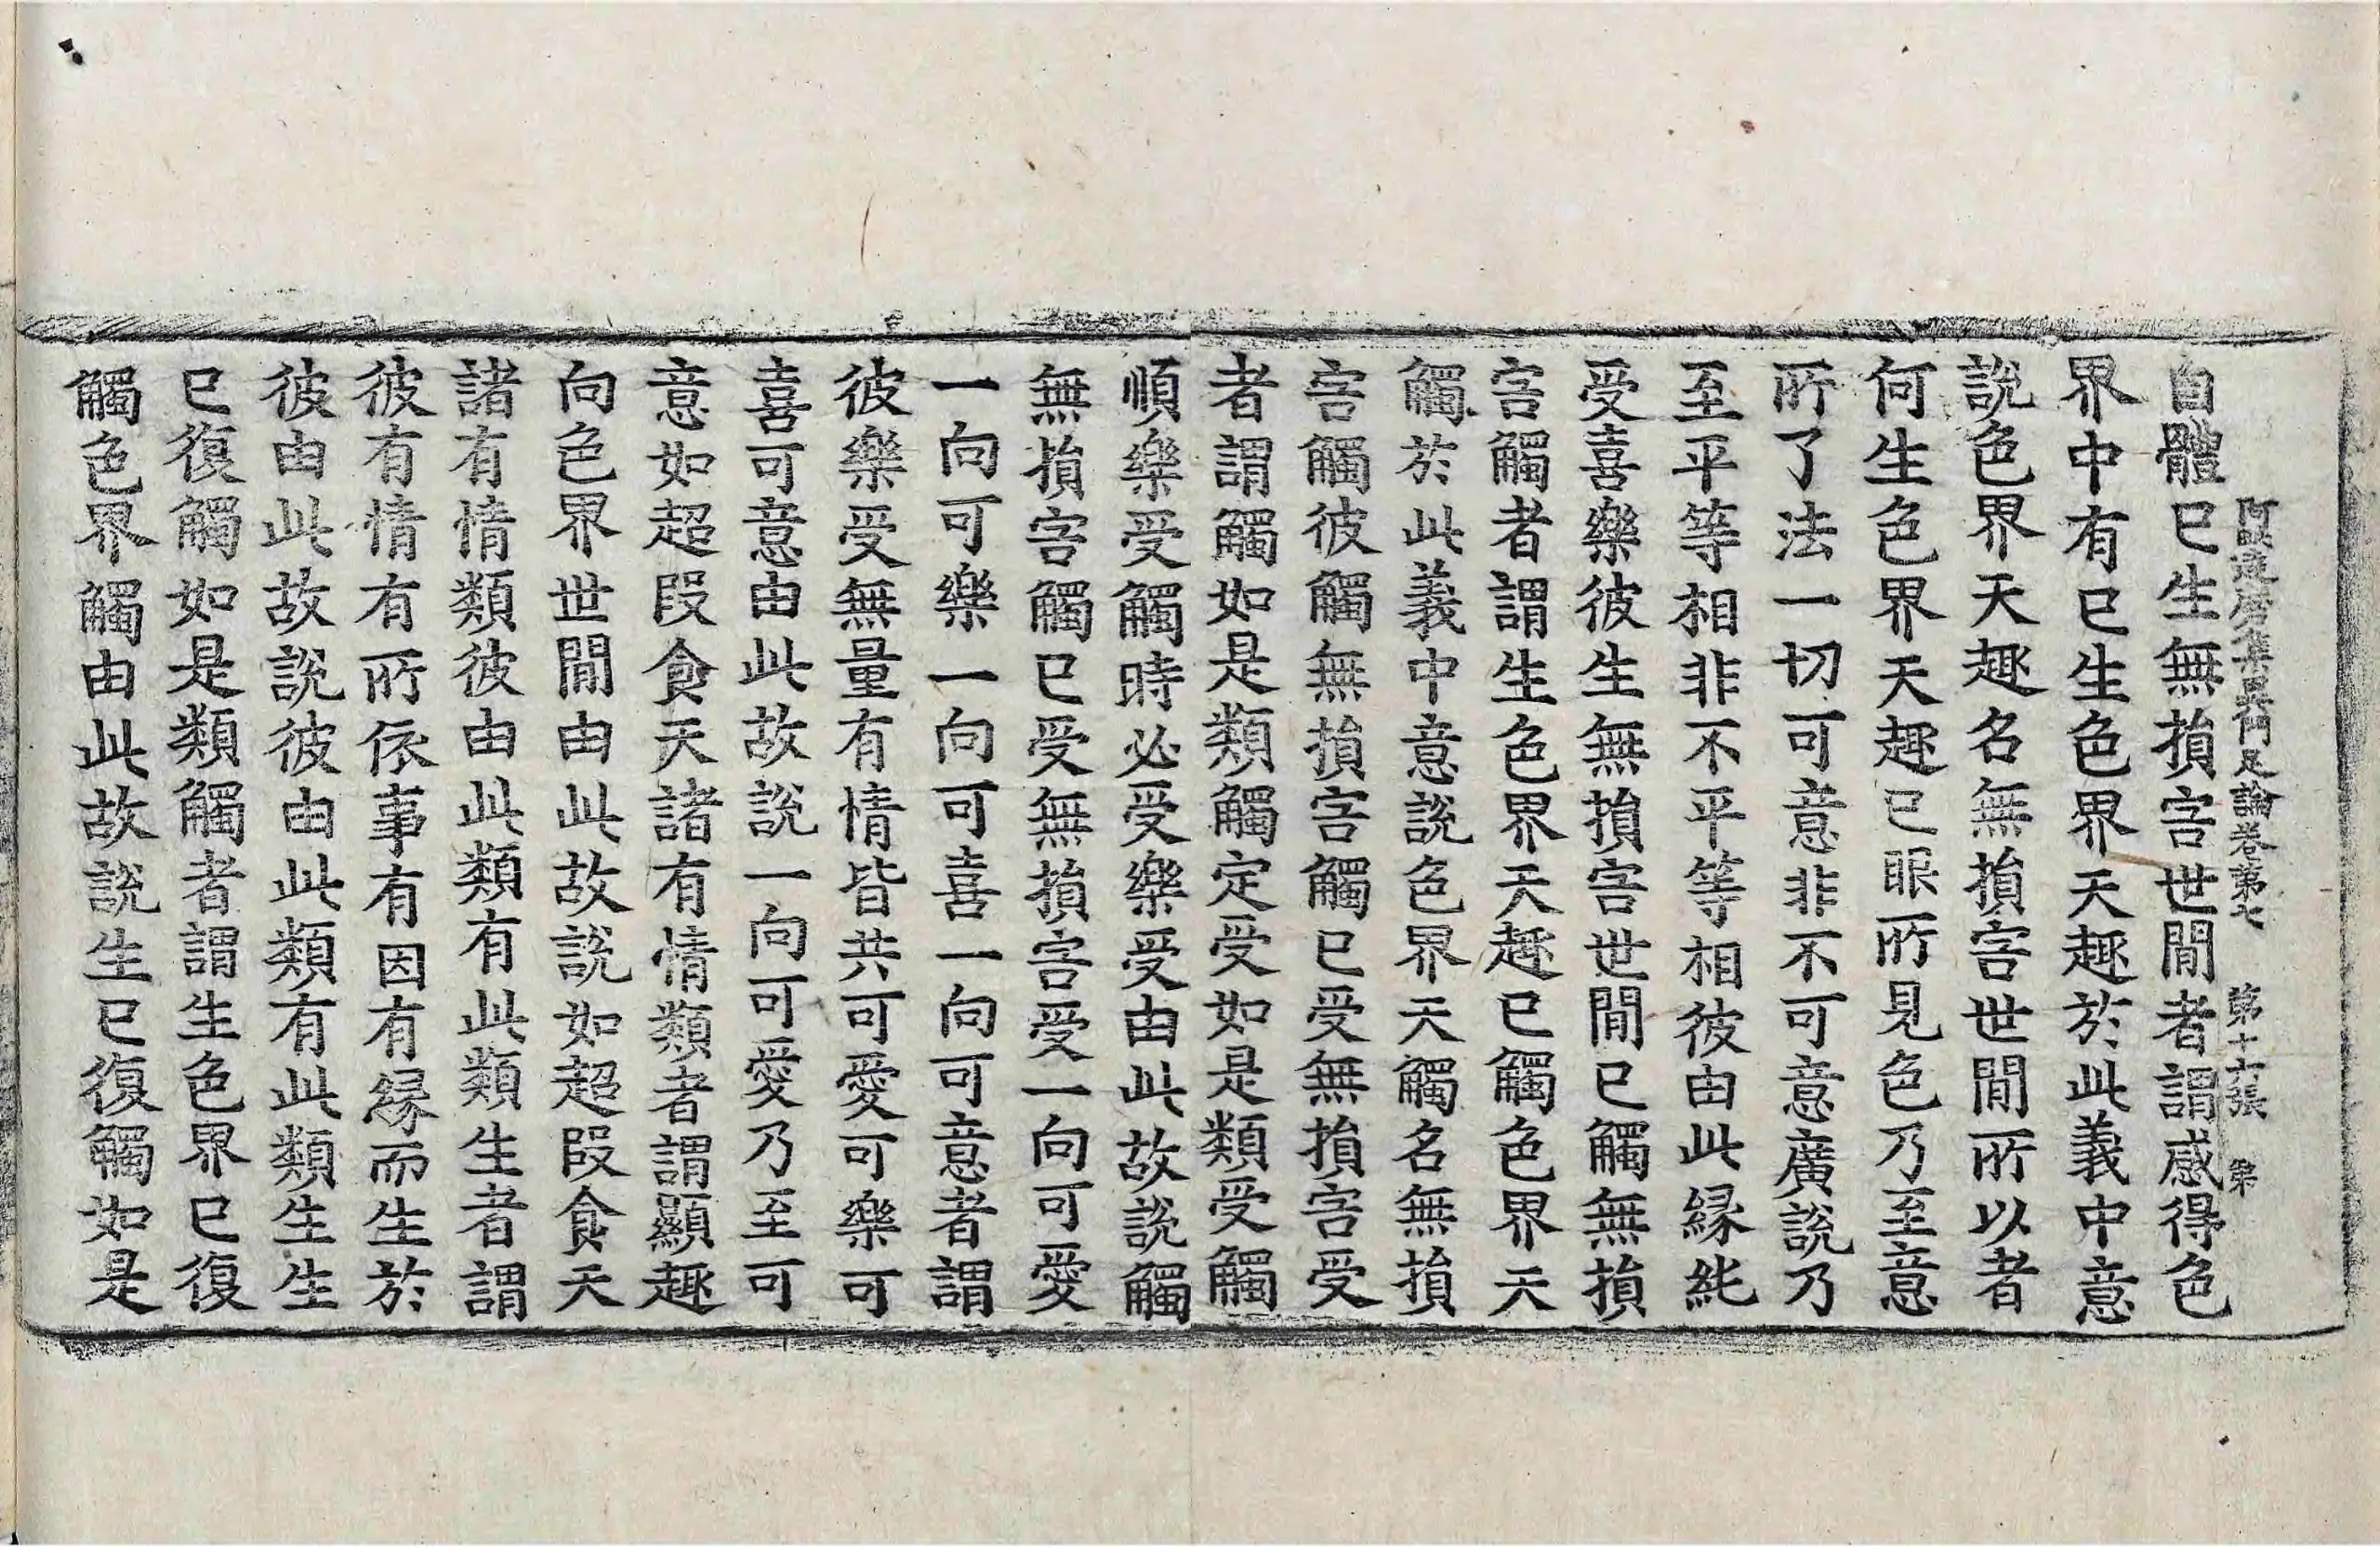 自體已生無損害世閒者謂感得色
阿毗達磨集異門足論卷第七 第十六張 第
界中有已生色界天趣於此義中意
說色界天趣名無損害世閒所以者
何生色界天趣已眼所見色乃至意
所了法一切可意非不可意廣說乃
至平等相非不平等相彼由此緣純
受喜樂彼生無損害世閒已觸無損
害觸者謂生色界天趣已觸色界天
觸於此義中意說色界天觸名無損
害觸彼觸無損害觸已受無損害受
者謂觸如是類觸定受如是類受觸
順樂受觸時必受樂受由此故說觸
無損害觸已受無損害受一向可愛
一向可樂一向可喜一向可意者謂
彼樂受無量有情皆共可愛可樂可
喜可意由此故說一向可愛乃至可
意如超段食天諸有情類者謂顯趣
向色界世閒由此故說如超段食天
諸有情類彼由此類有此類生者謂
彼有情有所依事有因有緣而生於
彼由此故說彼由此類有此類生生
已復觸如是類觸者謂生色界已復
觸色界觸由此故說生已復觸如是